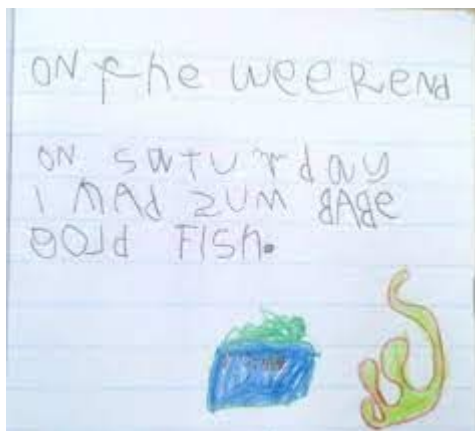 ON the weeкend
ON saturday
I HAd ZUM BABE
GOld FISh.